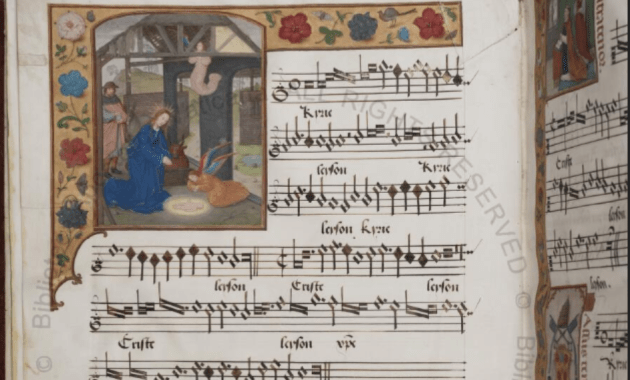 Kyrie
leyson Kyrie
leyson kyrie
leyson Criste leyson
Criste leyson xpe
ALL RIGHTS RESERVED ©
© Bibliot
© Bibl